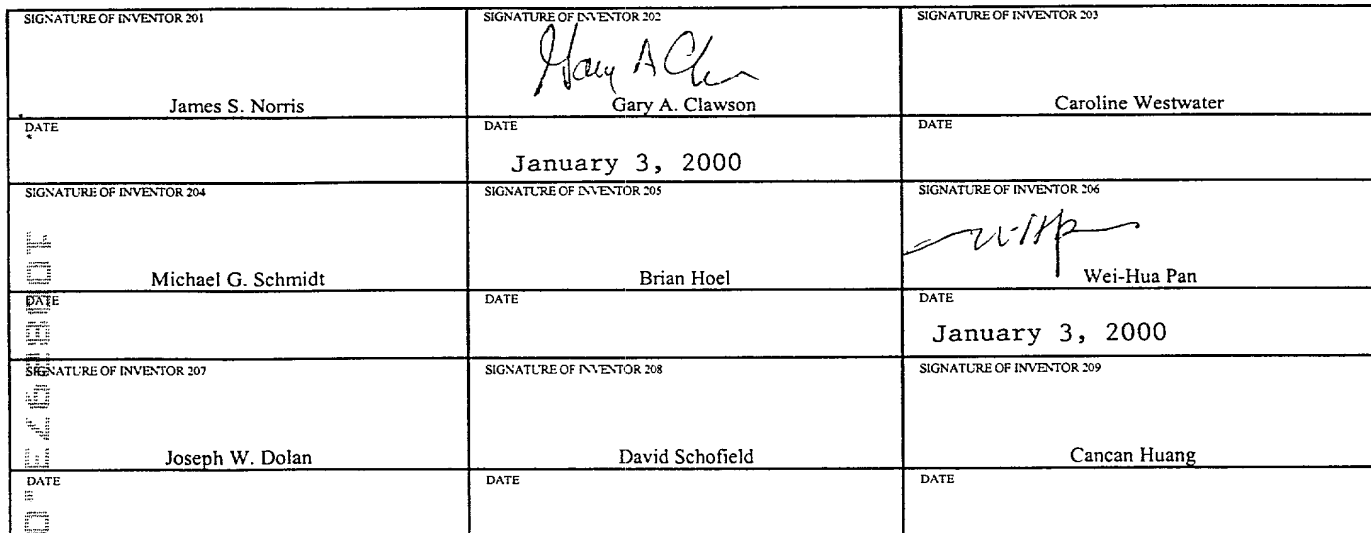 SIGNATURE OF INVENTOR 201
James S. Norris
DATE
SIGNATURE OF INVENTOR 202
Gary A. Clawson
DATE
January 3, 2000
SIGNATURE OF INVENTOR 203
Caroline Westwater
DATE
SIGNATURE OF INVENTOR 204
Michael G. Schmidt
DATE
SIGNATURE OF INVENTOR 205
Brian Hoel
DATE
SIGNATURE OF INVENTOR 206
Wei-Hua Pan
DATE
January 3, 2000
SIGNATURE OF INVENTOR 207
Joseph W. Dolan
DATE
SIGNATURE OF INVENTOR 208
David Schofield
DATE
SIGNATURE OF INVENTOR 209
Cancan Huang
DATE